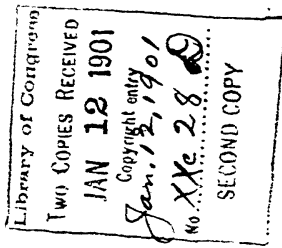 Library of Congress
TWO COPIES RECEIVED
JAN 12 1901
Copyright entry
Jan. 12, 1901
No. XXc 28
SECOND COPY